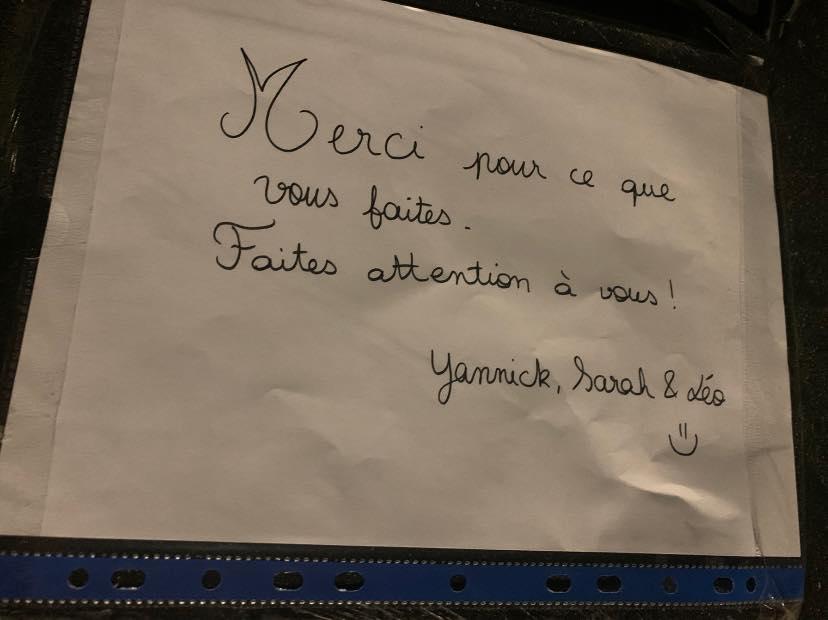 Merci pour ce que
vous faites.
Faites attention à vous!
Yannick, Sarah & Léo